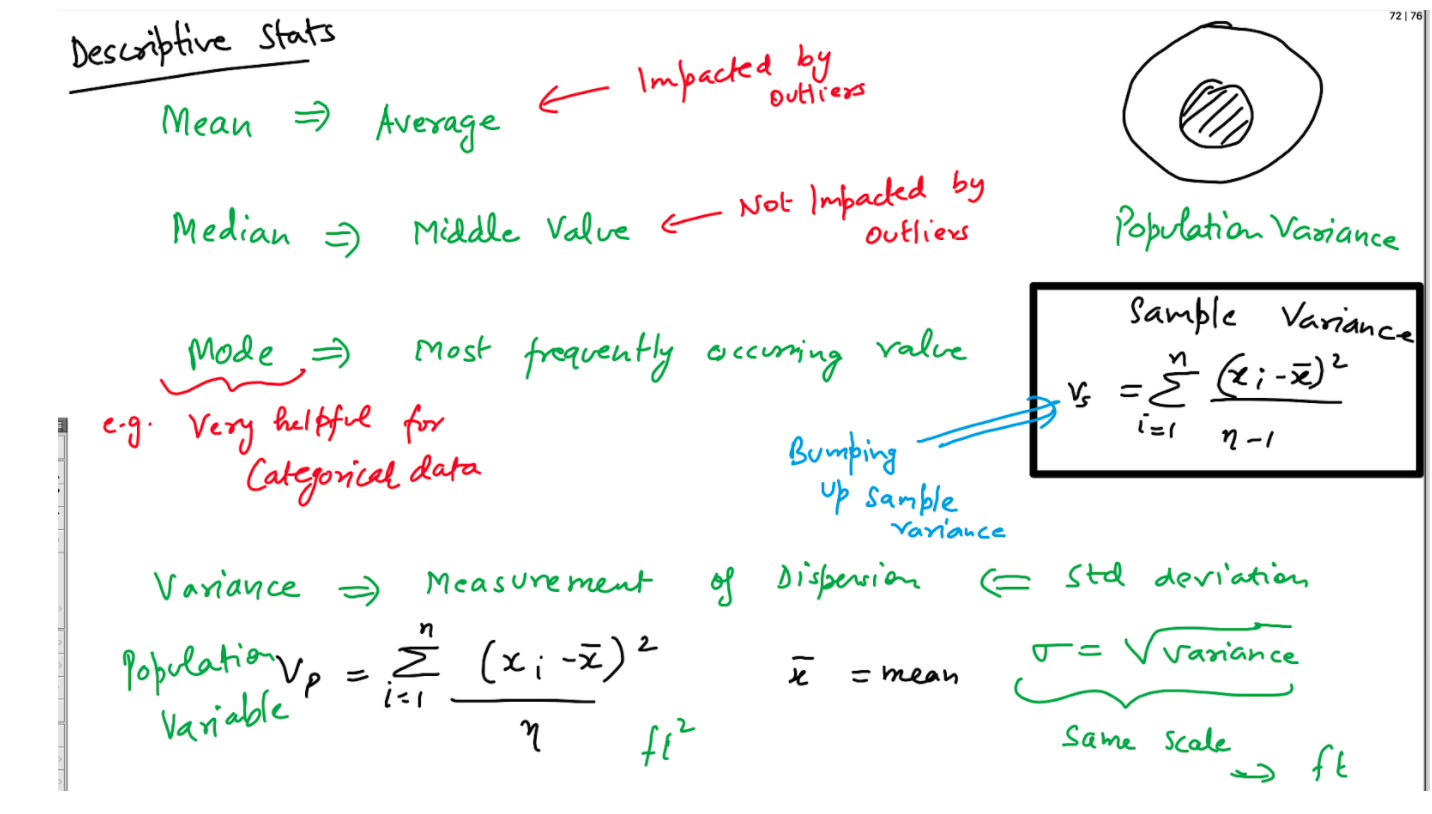 72 | 76
Descriptive Stats
Mean ⇒ Average ← Impacted by
outliers
Median ⇒ Middle Value ← Not Impacted by
outliers
Population Variance
Mode ⇒ Most frequently occurring value
e.g. Very helpful for
Categorical data
Sample Variance
Vs = Σ_{i=1}^{n} (xᵢ - x̄)² / n-1
Bumping
up sample
variance
Variance ⇒ Measurement of Dispersion ⇐ Std deviation
Population
Variable
Vp = Σ_{i=1}^{n} (xᵢ - x̄)² / n
ft²
x̄ = mean
σ = √variance
Same scale
→ ft